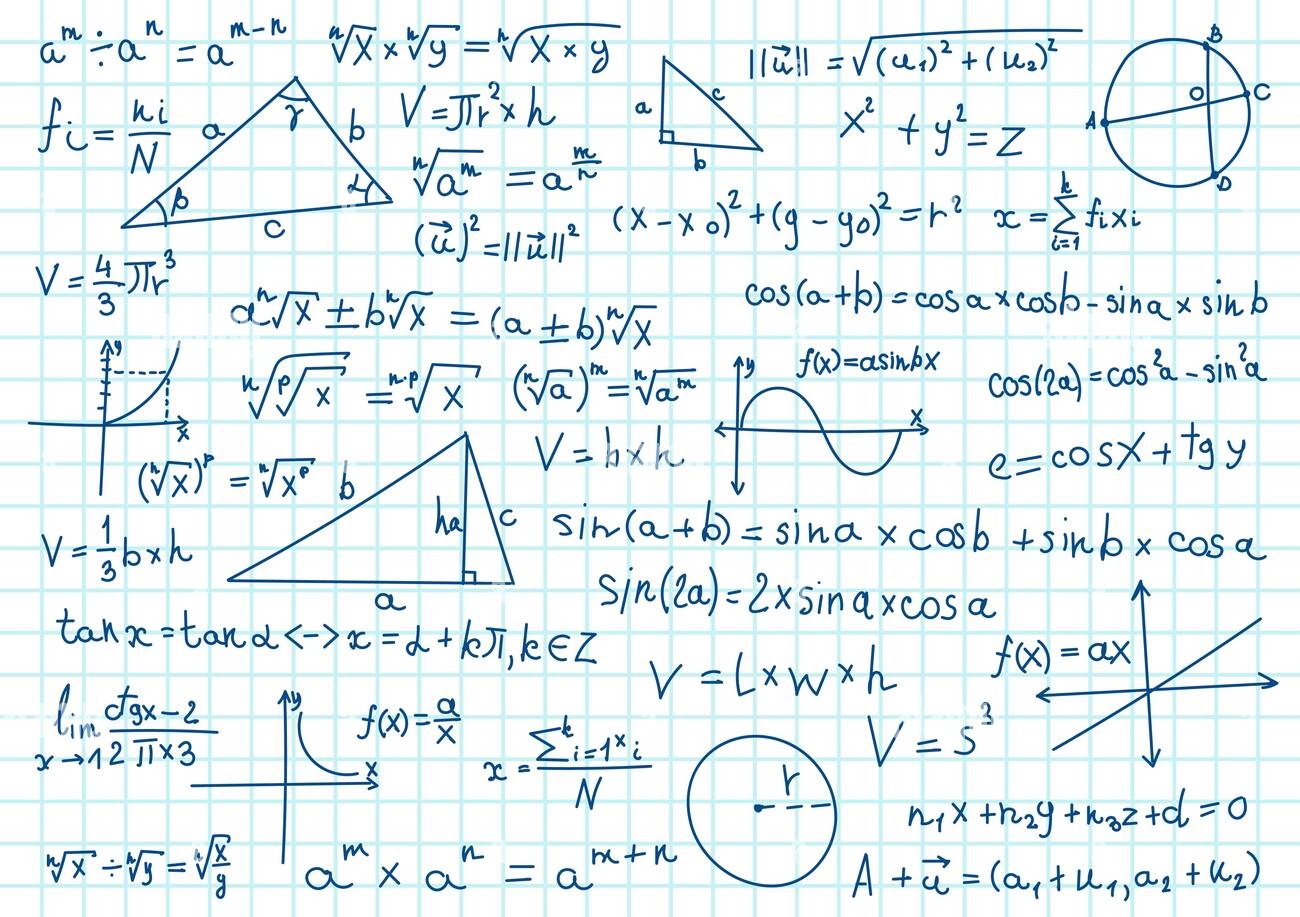 aᵐ ÷ aⁿ = aᵐ⁻ⁿ
ⁿ√x × ⁿ√y = ⁿ√x × y
||u⃗|| = √(u₁)² + (u₂)²
fi = ni/N
a
γ
b
β
α
c
V = πr² × h
ⁿ√aᵐ = a^(m/n)
(u⃗)² = ||u⃗||²
a
c
b
x² + y² = z
B
O
C
A
D
(x - x₀)² + (y - y₀)² = r²
x = ∑ᵏᵢ₌₁ fixi
V = 4/3 πr³
aⁿ√x ± bⁿ√x = (a ± b)ⁿ√x
cos(a+b) = cosa × cosb - sina × sinb
y
x
ⁿ√ᵖ√x = ⁿ·ᵖ√x
(ⁿ√a)ᵐ = ⁿ√aᵐ
y
f(x)=asinbx
x
cos(2a) = cos²a - sin²a
(ⁿ√x)ᵖ = ⁿ√xᵖ
V = b×h
e = cosx + tgy
V = 1/3 b × h
b
ha
c
a
sin(a+b) = sina × cosb + sinb × cosa
sin(2a) = 2×sina×cosa
tanx = tanα <-> x = α + kπ, k ∈ Z
V = L×w×h
f(x) = ax
lim x→1 ctgx-2 / 2π×3
y
f(x) = a/x
x
x = ∑ᵏ i=1ˣi / N
r
V = s³
n₁x + n₂y + n₃z + d = 0
ⁿ√x ÷ ⁿ√y = ⁿ√x/y
aᵐ × aⁿ = aᵐ⁺ⁿ
A + u⃗ = (a₁ + u₁, a₂ + u₂)